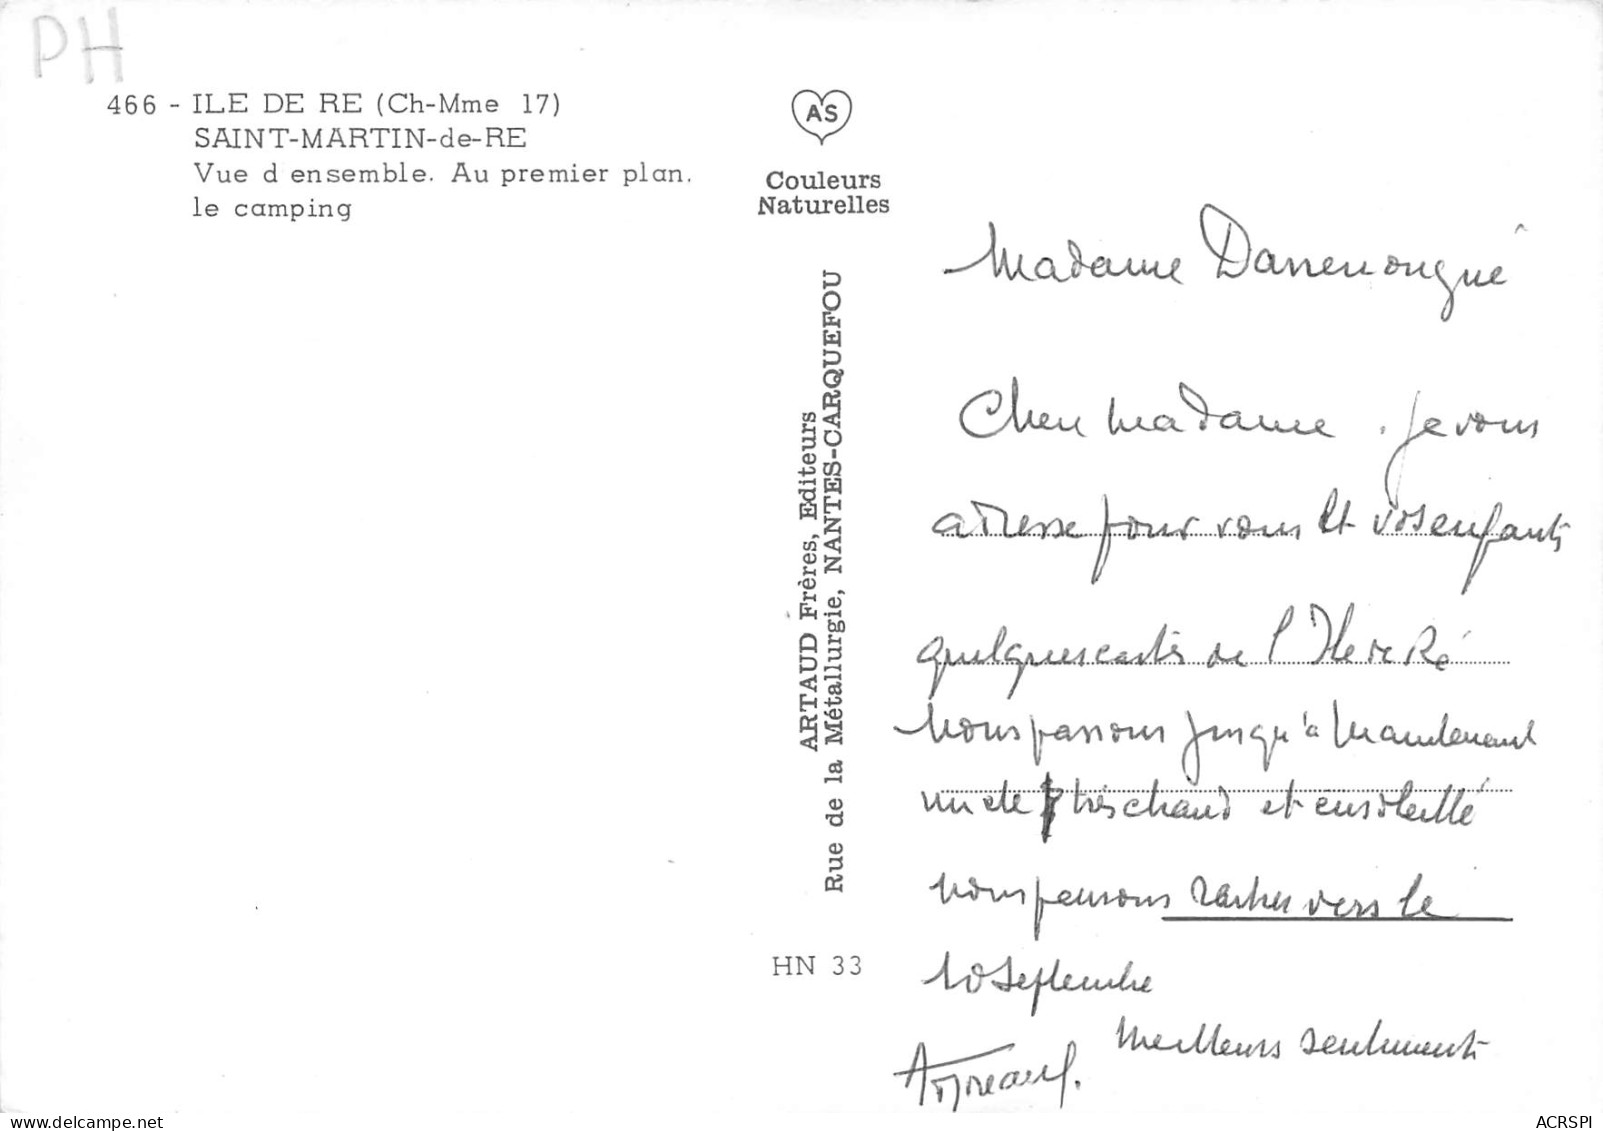 PH
466 - ILE DE RE (Ch-Mme 17)
SAINT-MARTIN-de-RE
Vue d ensemble. Au premier plan.
le camping
A'S
Couleurs
Naturelles
ARTAUD Frères, Editeurs
Rue de la Métallurgie, NANTES-CARQUEFOU
HN 33
Madame
Cher Madame. Je vous
adresse pour vous et vos enfants
quelques cartes de l'Ile de Ré
Nous passons jusqu'à maintenant
un été très chaud et ensoleillé
nous pensons rester vers le
10 septembre
Meilleurs sentiments
ACRSPI